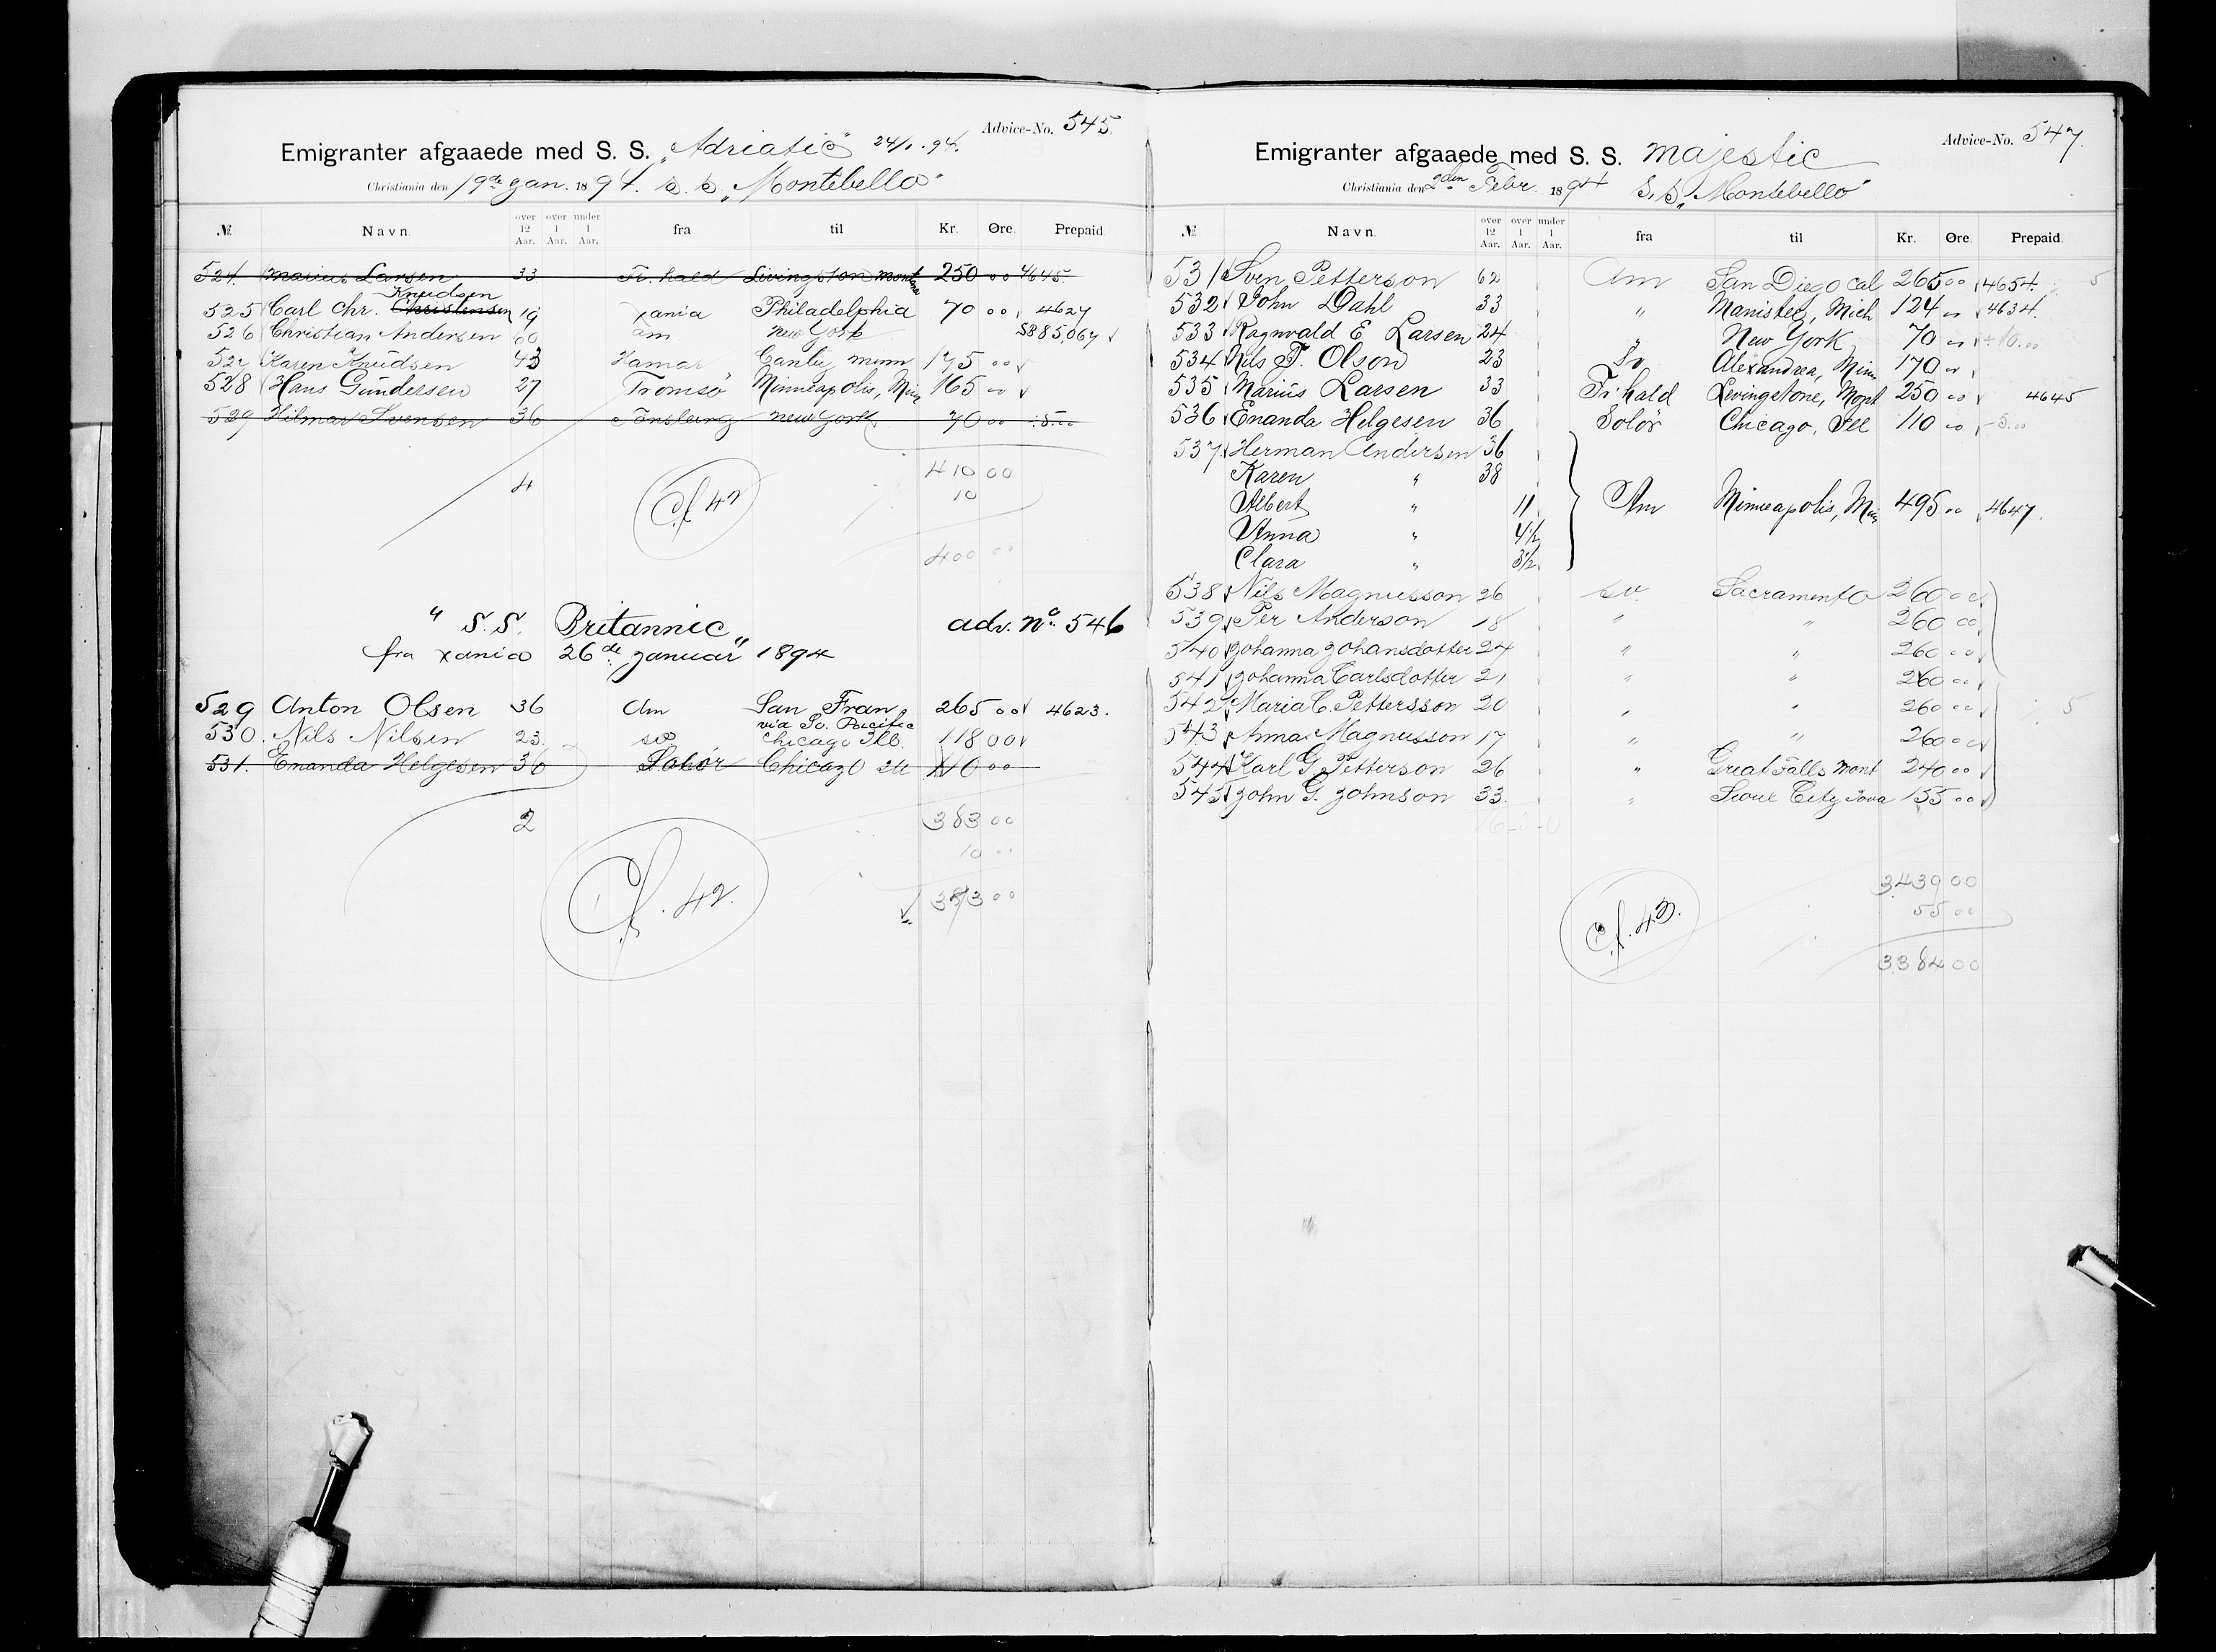 Advice-No. 545.
Emigranter afgaaede med S. S. „Adriatic" 24/1. 94.
Christiania den 19de Jan. 1894. s. s. „Montebello"
№ Navn. over 12 Aar. over 1 Aar. under 1 Aar. fra til Kr. Øre. Prepaid.
524. Marius Larsen 33 Fr. hald Livingston Mont 250 00 4645.
Knudsen
525 Carl Chr. Christensen 19 xania Philadelphia 70 00 4627
526 Christian Andersen 60 am New York 5885,067
527 Karen Knudsen 43 Hamar Canby Minn 175 00
528 Hans Gundersen 27 Tromsö Minneapolis, Min 165 00
529 Hilmar Svensen 36 Tönsberg New York 70 00 5.00
410 00
4 Cf 42 10
400 00
" S.S. Britannic" adv. No. 546
fra xania 26de Januar 1894
529 Anton Olsen 36 Am San Fran 265 00 4623.
via So. Pacific
530. Nils Nilsen 23. sv Chicago Ill. 118 00
531. Enanda Helgesen 36 Solör Chicago Ill 110 00
2 383 00
10 00
Cf. 42. 373 00
Advice-No. 547.
Emigranter afgaaede med S. S. Majestic
Christiania den 2den Febr. 1894 S.S. „Montebello"
№ Navn. over 12 Aar. over 1 Aar. under 1 Aar. fra til Kr. Øre. Prepaid.
531 Sven Petterson 62 Am San Diego Cal 265 00 4654. 5
532 John Dahl 33 " Manistee, Mich 124 00 4634.
533 Ragnvald E Larsen 24 " New York 70 00 ÷ 10.00
534 Nils T. Olson 23 Sv Alexandria, Min 170 00
535 Marius Larsen 33 Fr. hald Levingstone, Mont 250 00 4645
536 Enanda Helgesen 36 Solör Chicago, Ill 110 00 5.00
537 Herman Andersen 36
Karen " 38
Albert " 11 Am Minneapolis, Min 495 00 4647.
Anna " 4 1/2
Clara " 3 1/2
538 Nils Magnusson 26 sv. Sacramento 260 00
539 Per Anderson 18 " " 260 00
540 Johanna Johansdotter 24 " " 260 00
541 Johanna Carlsdotter 21 " " 260 00
542 Maria C. Pettersson 20 " " 260 00 ÷ 5
543 Anna Magnusson 17 " " 260 00
544 Karl G. Petterson 26 " Great Falls Mont 240 00
545 John G. Johnson 33. " Sioux City Iova 155 00
16-3-0
3439 00
55 00
Cf. 43.
3384 00